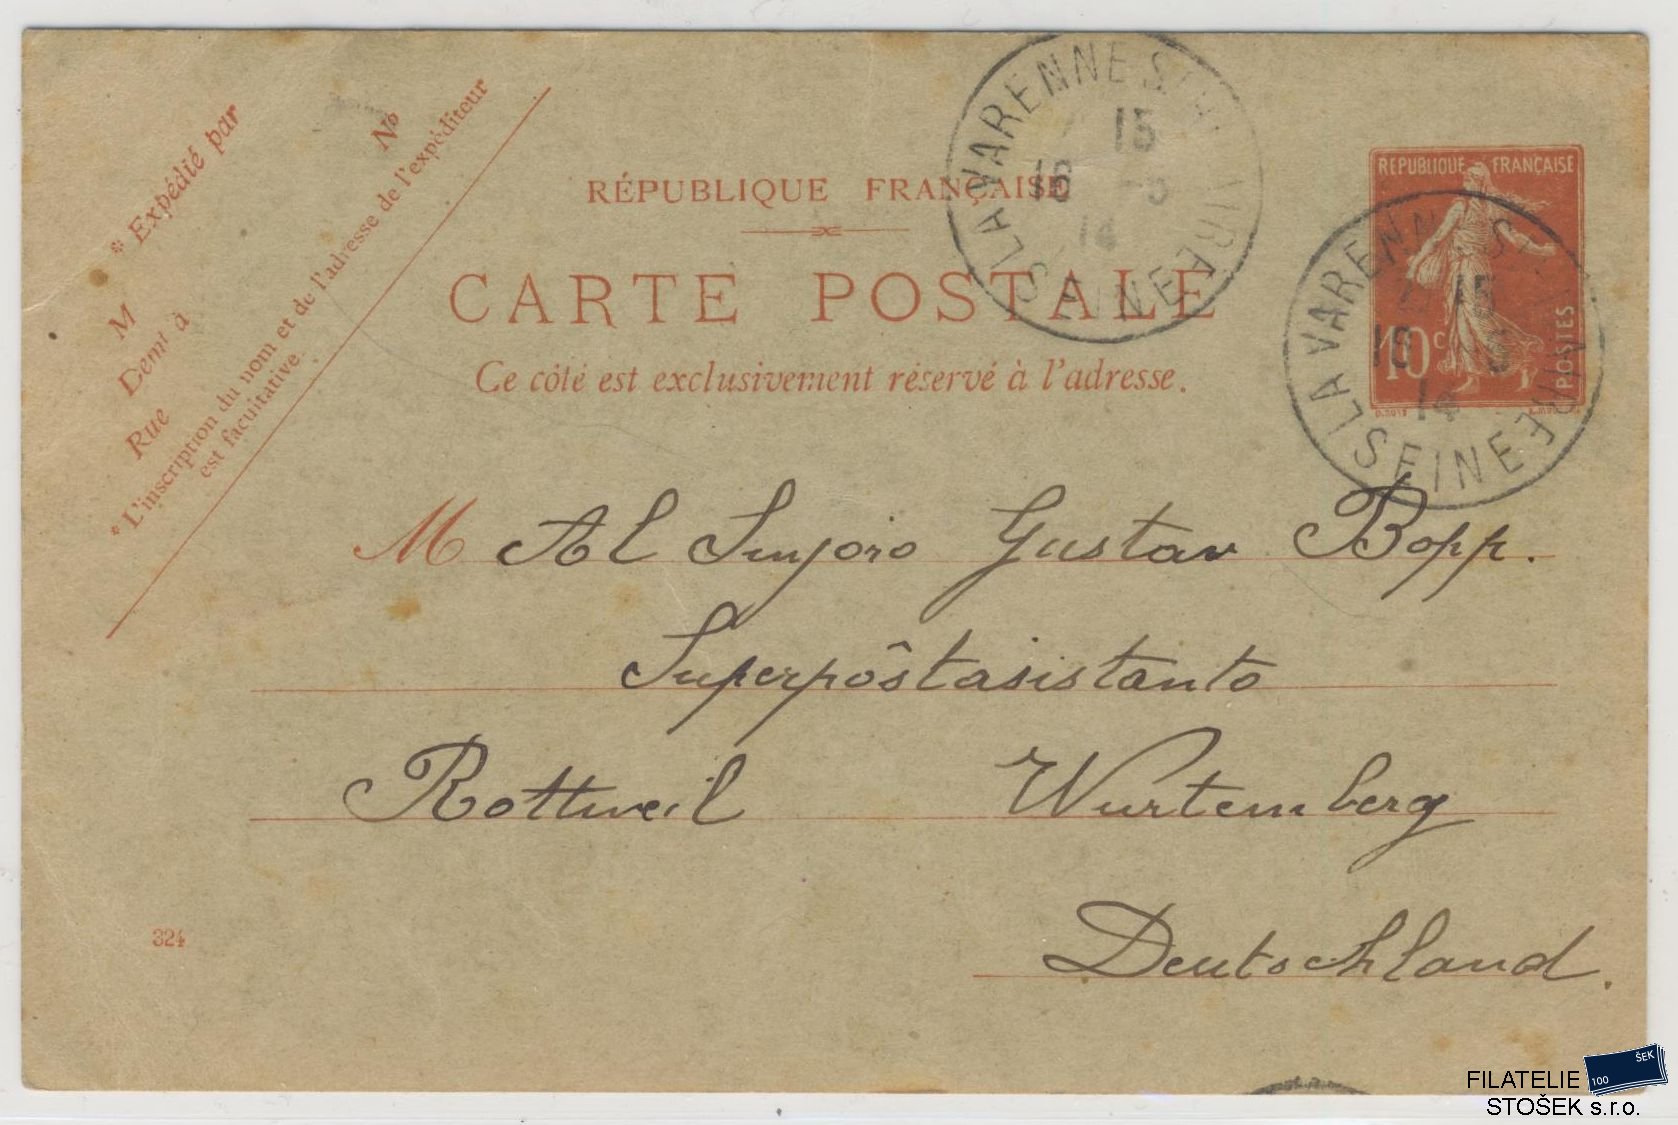 * Expédié par
M
Demt à
Rue
No
* L'inscription du nom et de l'adresse de l'expéditeur
est facultative.
RÉPUBLIQUE FRANÇAISE
CARTE POSTALE
Ce côté est exclusivement réservé à l'adresse.
LA VARENNE ST H
15
16
14
SEINE
REPUBLIQUE FRANÇAISE
10c
POSTES
LA VARENNE ST
15
16
14
SEINE
M Al Sinjoro Gustav Bopp.
Superpôstasistanto
Rottweil Wurtemberg
Deutschland.
324
FILATELIE
STOŠEK s.r.o.
100
ŠEK